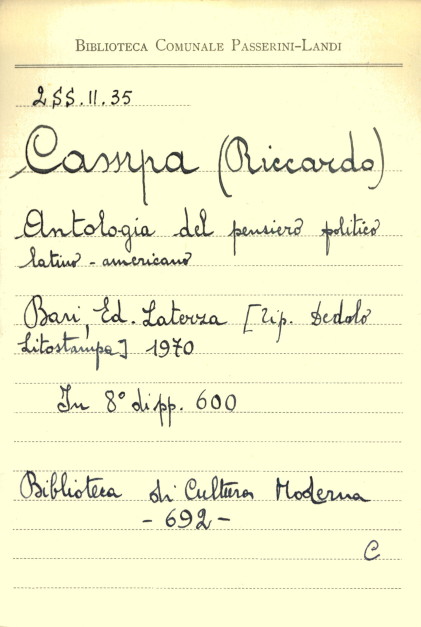 BIBLIOTECA COMUNALE PASSERINI-LANDI
2SS.II.35
Campa (Riccardo)
Antologia del pensiero politico
latino-americano
Bari, Ed. Laterza [Tip. Dedalo
Litostampa] 1970
In 8° di pp. 600
Biblioteca di Cultura Moderna
- 692 -
C